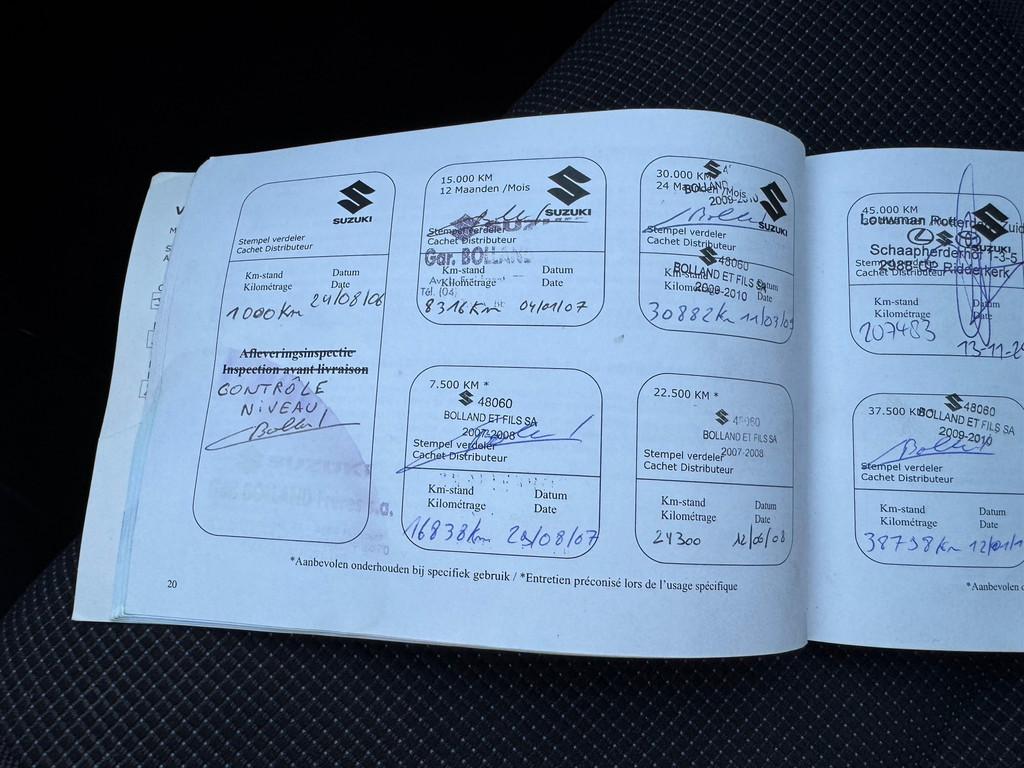 SUZUKI
Stempel verdeler
Cachet Distributeur
Km-stand Datum
Kilométrage Date
1000 Km 24/08/06
Afleveringsinspectie
Inspection avant livraison
CONTRÔLE
NIVEAU
15.000 KM
12 Maanden /Mois
SUZUKI
Stempel verdeler
Cachet Distributeur
Gar. BOLLAND
Km-stand Datum
Kilométrage Date
Tél. (04)
8316 Km 04/01/07
7.500 KM *
48060
BOLLAND ET FILS SA
2007-2008
Stempel verdeler
Cachet Distributeur
Km-stand Datum
Kilométrage Date
16838 Km 29/08/07
30.000 KM
24 Maanden /Mois
BOLLAND
2009-2010
SUZUKI
Stempel verdeler
Cachet Distributeur
48060
BOLLAND ET FILS SA
2009-2010
Km-stand Datum
Kilométrage Date
30882 Km 11/03/09
22.500 KM *
48060
BOLLAND ET FILS SA
2007-2008
Stempel verdeler
Cachet Distributeur
Km-stand Datum
Kilométrage Date
24300 12/06/08
45.000 KM
Louwman Rotterdam Zuid
SUZUKI
Schaapherderhof 1-3-5
2988 Ridderkerk
Stempel verdeler
Cachet Distributeur
Km-stand Datum
Kilométrage Date
207483 13-11-2
37.500 KM
48060
BOLLAND ET FILS SA
2009-2010
Stempel verdeler
Cachet Distributeur
Km-stand Datum
Kilométrage Date
38738 Km 12/01/1
*Aanbevolen onderhouden bij specifiek gebruik / *Entretien préconisé lors de l'usage spécifique
*Aanbevolen
20